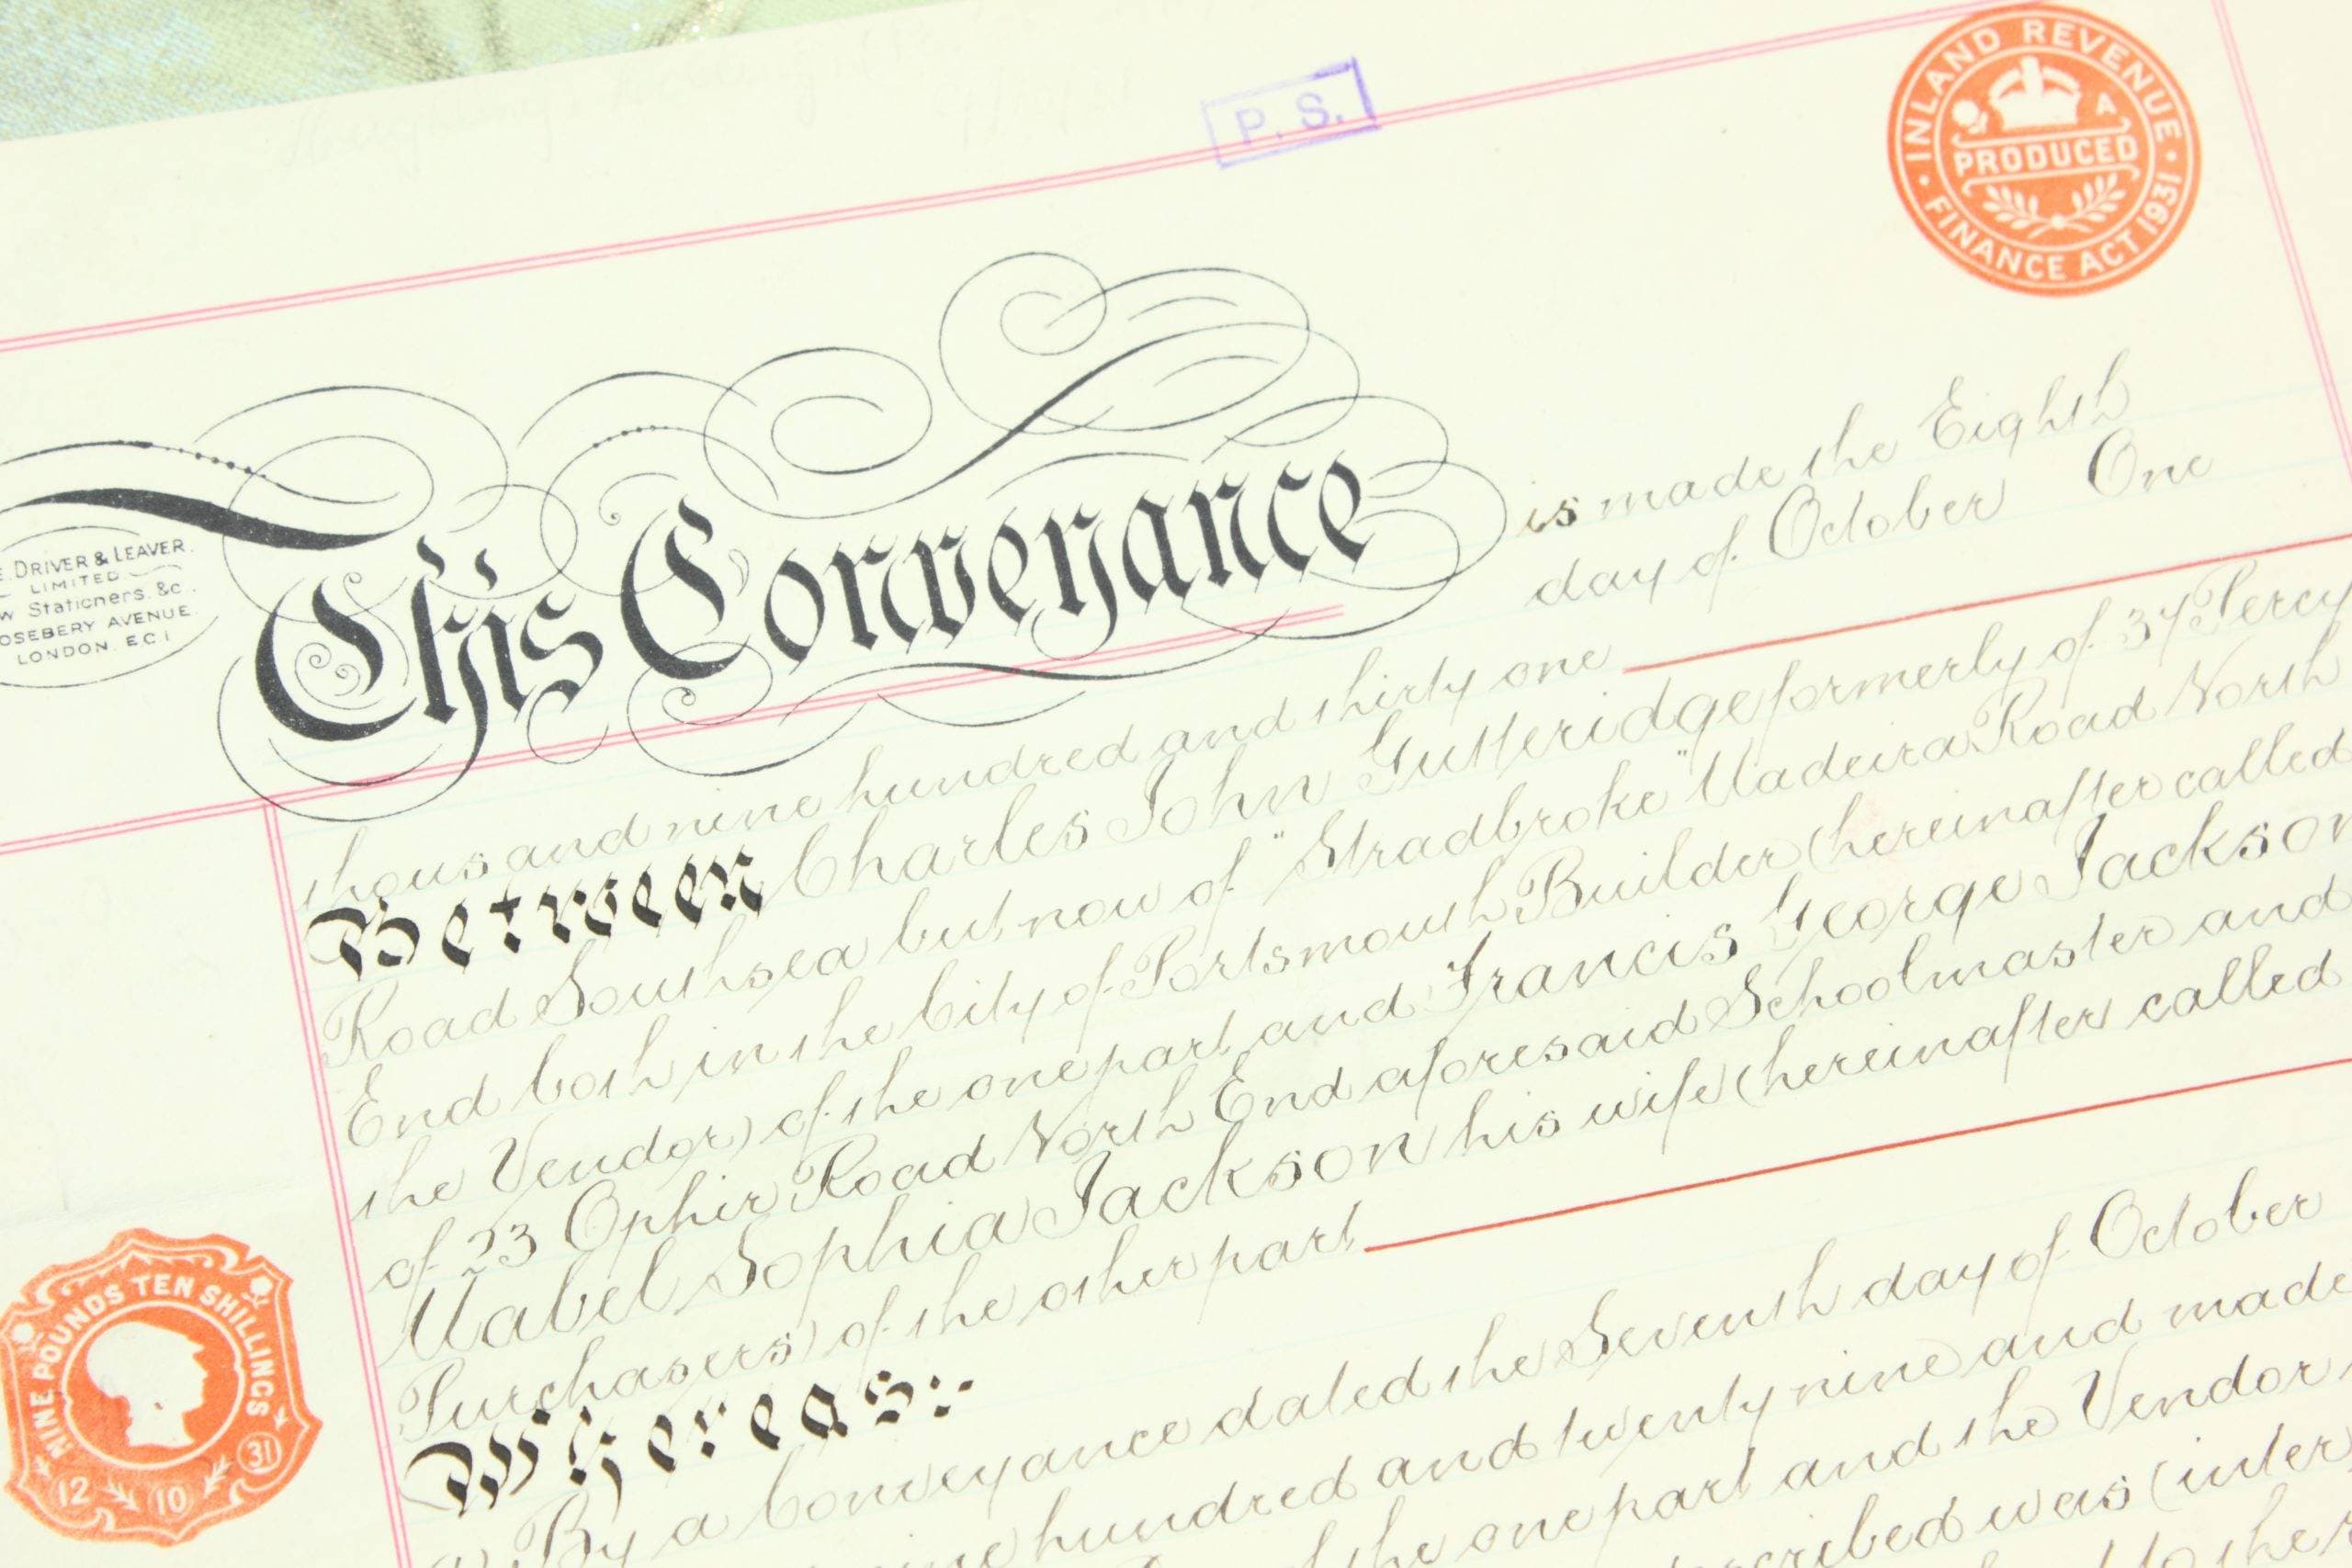 P. S.
INLAND REVENUE
A
PRODUCED
FINANCE ACT 1931
DRIVER & LEAVER.
LIMITED
Stationers. &c.
OSEBERY AVENUE.
LONDON. E.C.1
This Conveyance is made the Eighth
day of October One
thousand nine hundred and thirty one
Between Charles John Gutteridge formerly of 37 Percy
Road Southsea but now of "Stradbroke" Madeira Road North
End both in the City of Portsmouth Builder (hereinafter called
the Vendor) of the one part and Francis George Jackson
of 23 Ophir Road North End aforesaid Schoolmaster and
Mabel Sophia Jackson his wife (hereinafter called
Purchasers) of the other part
Whereas:-
By a Conveyance dated the Seventh day of October
nine hundred and twenty nine and made
of the one part and the Vendor
described was (inter
NINE POUNDS TEN SHILLINGS
31
12 10